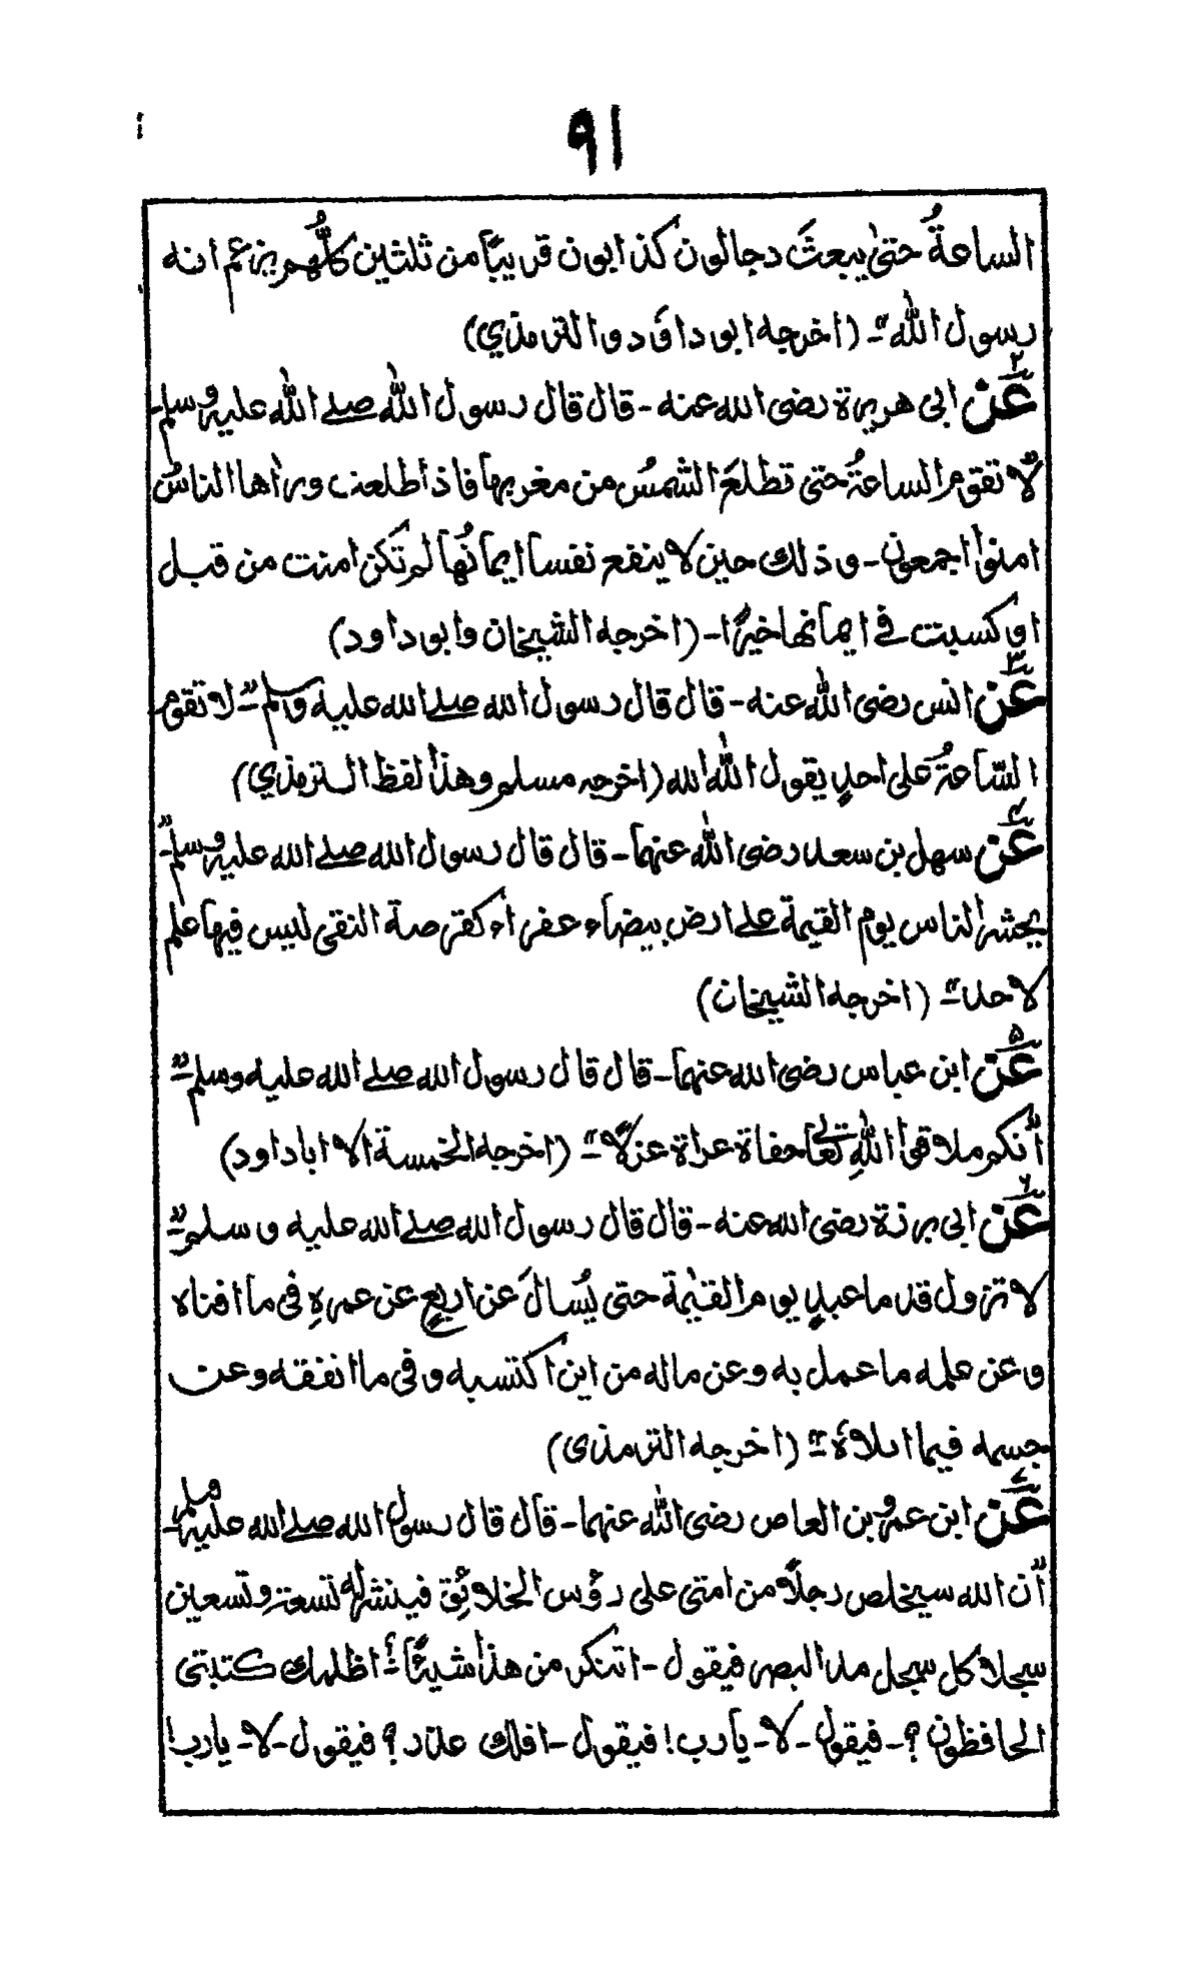 ٩١
الساعةُ حتىٰ يبعثَ دجالون كذابون قريبًا من ثلثين كلُّهم يزعم انه
رسول الله" - (اخرجه ابو داؤد والترمذي)
٢
عَنْ ابى هريرة رضى الله عنه - قال قال رسول الله صلے الله عليه وسلم -
"لا تقوم الساعةُ حتى تطلعَ الشمسُ من مغربها فاذا طلعت وراٰها الناسُ
امنوا اجمعون - وذلك حين لا ينفع نفسا ايمانُها لم تكن امنت من قبل
او كسبت فے ايمانها خيرًا - (اخرجه الشيخان وابو داود)
٣
عَنْ انس رضى الله عنه - قال قال رسول الله صلے الله عليه وسلم - "لا تقوم
السّاعةُ على احدٍ يقول الله الله (اخرجه مسلم وهذا لفظ الترمذي)
٤
عَنْ سهل بن سعد رضى الله عنهما - قال قال رسول الله صلے الله عليه وسلم - "
يحشر الناس يوم القيمة علے ارض بيضاء عفراء كقرصة النقى ليس فيها علم
لاحد" - (اخرجه الشيخان)
۵
عَنْ ابن عباس رضى الله عنهما - قال قال رسول الله صلے الله عليه وسلم - "
اِنكم ملاقوا اللهِ تعالى حفاة عراة عزلًا" - (اخرجه الخمسة الا ابا داود)
۶
عَنْ ابى برزة رضى الله عنه - قال قال رسول الله صلے الله عليه وسلم - "
لا تزول قدما عبدٍ يوم القيٰمة حتى يُسالَ عن اربعٍ عن عمرهِ فى ما افناه
وعن علمه ما عمل به وعن ماله من اين اكتسبه وفى ما انفقه وعن
جسمه فيما ابلاهُ" - (اخرجه الترمذى)
٧
عَنْ ابن عمرو بن العاص رضى الله عنهما - قال قال رسول الله صلے الله عليه وسلم -
"اَن الله سيخلص رجلًا من امتى على رؤس الخلائِق فينشر له تسعة وتسعين
سجلا كل سجل مد البصر فيقول - اتنكر من هذا شيئًا؟ - أ اظلمك كتبتى
الحافظون؟ - فيقول - لا - يا رب! فيقول - افلك عذر؟ فيقول - لا - يا رب!